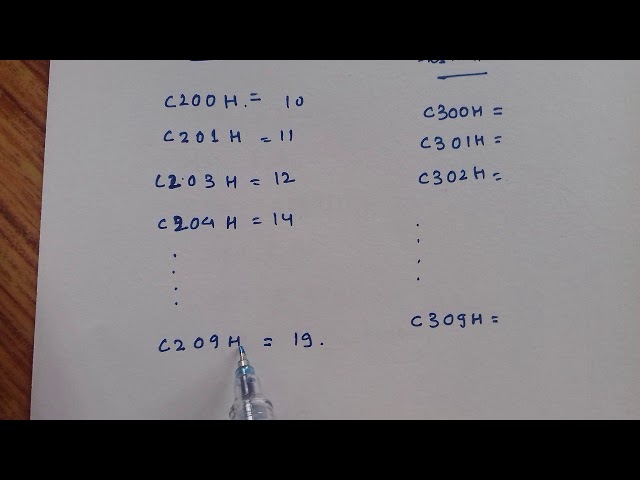 C200H. = 10
C201H = 11
C203H = 12
C204H = 14
C209H = 19.
C300H =
C301H =
C302H =
C309H =